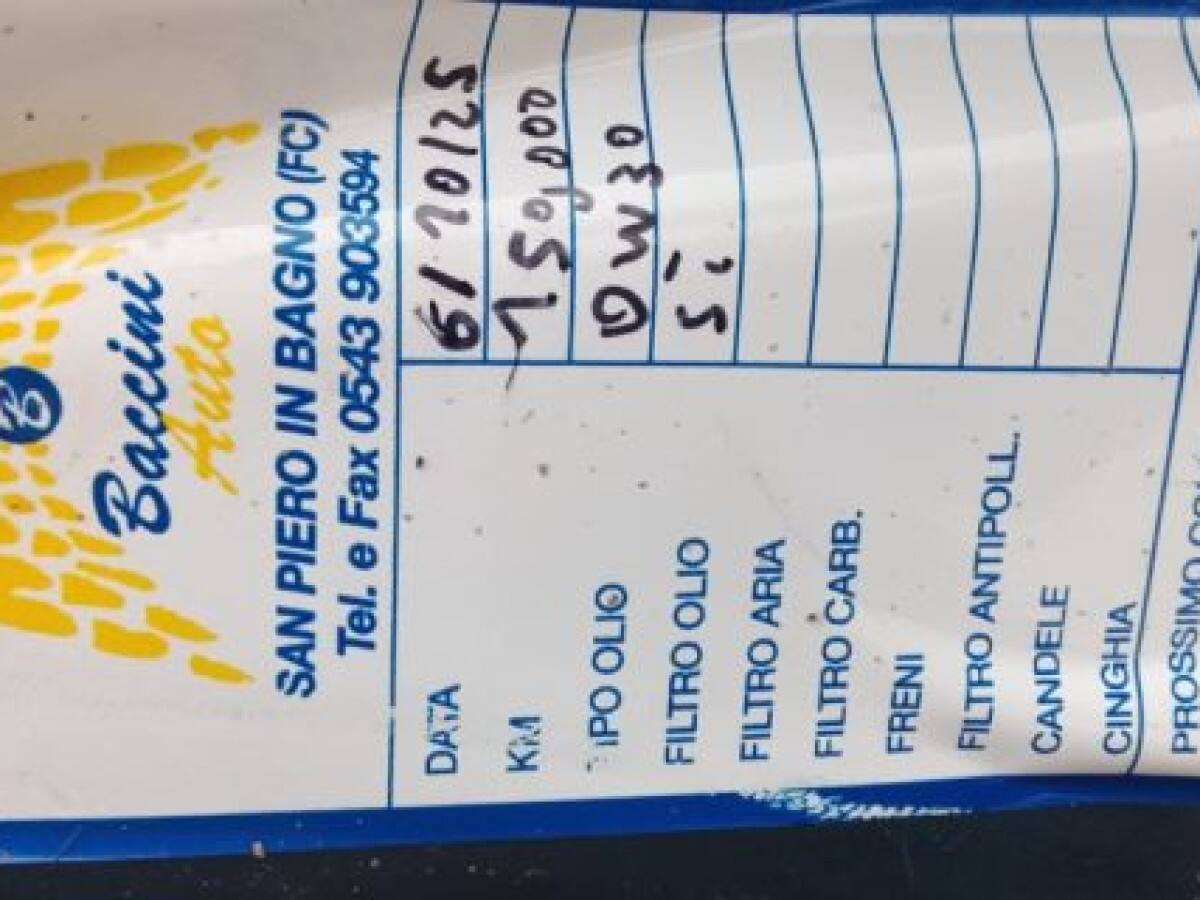 Baccini
Auto
SAN PIERO IN BAGNO (FC)
Tel. e Fax 0543 903594
DATA 6/10/25
KM 150,000
TIPO OLIO 0W30
FILTRO OLIO Sì
FILTRO ARIA
FILTRO CARB.
FRENI
FILTRO ANTIPOLL.
CANDELE
CINGHIA
PROSSIMO